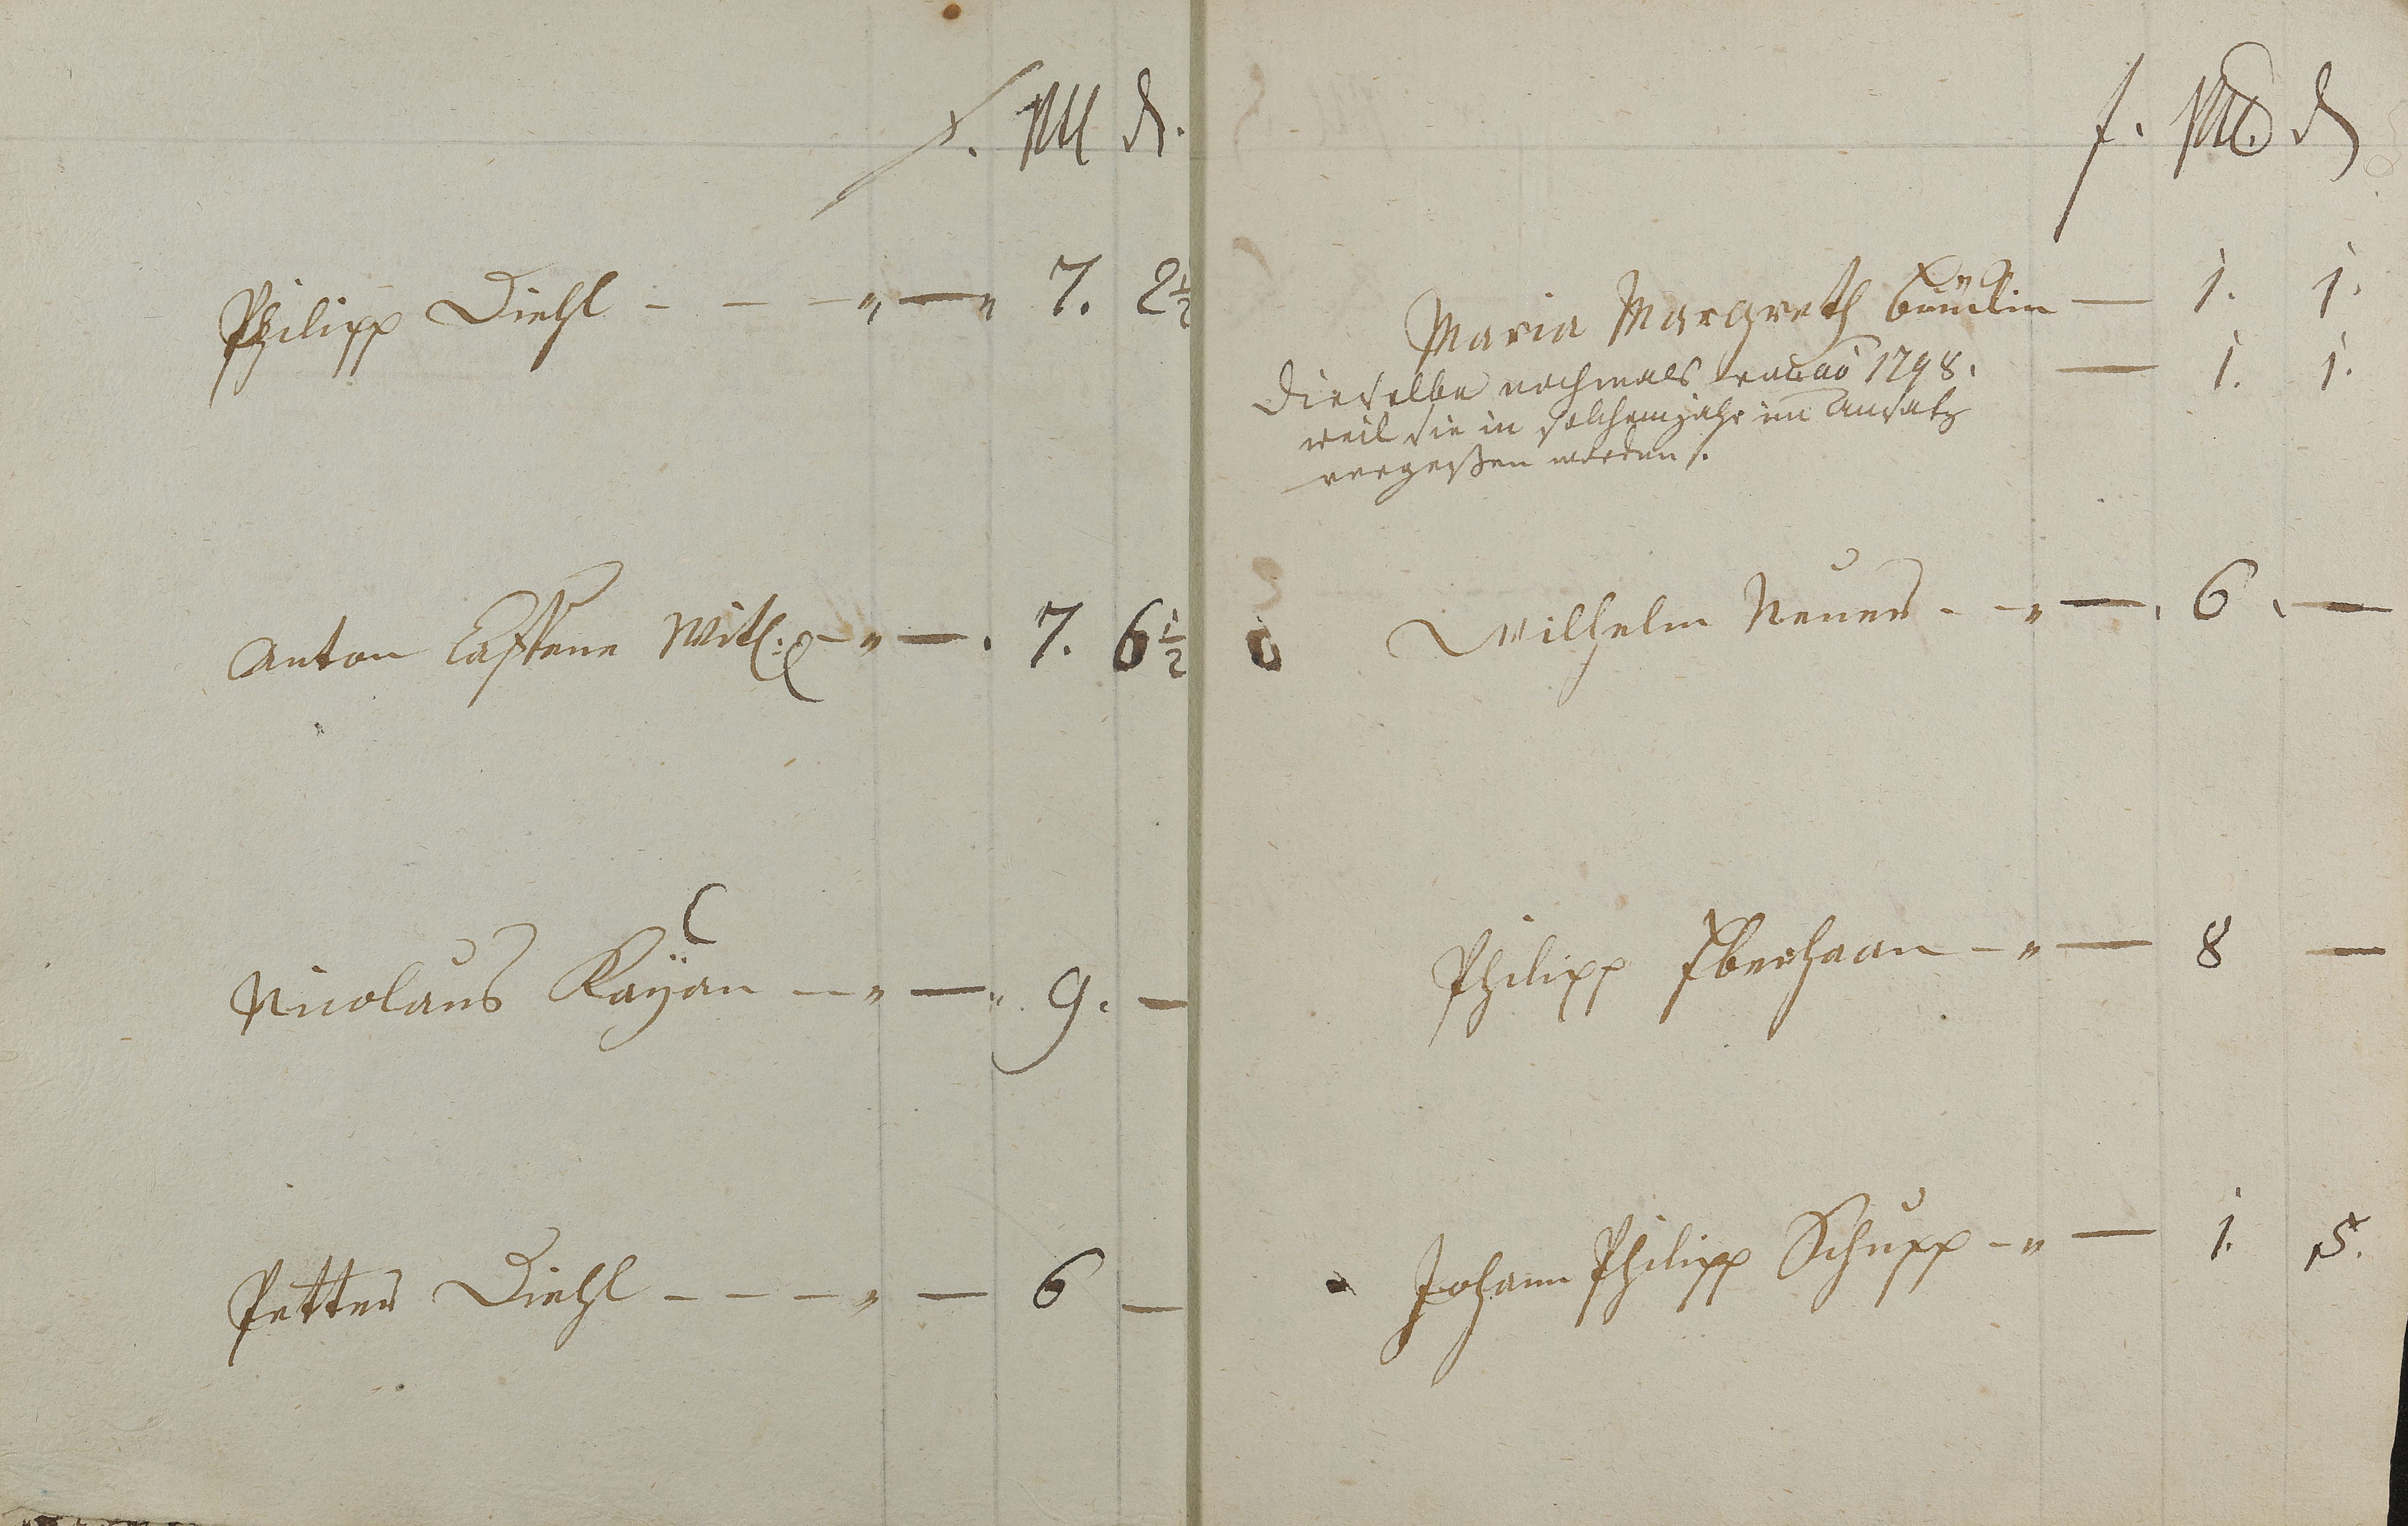 f. Alb d.
Philipp Diehl - - - „ — „ 7. 2½
Anton Casten Witt: - „ — . 7. 6½
Nicolaus Kayßer - „ — „ 9. —
Petter Diehl - - - „ — 6 —
f. Alb. d
Maria Margreth — 1. 1.
Dieselbe nochmals pro ao 1798. — 1. 1.
weil sie in solchem jahr im Ansatz
vergeßen worden.
Wilhelm Neuer - - „ — . 6 . —
Philipp - „ — 8 —
Johann Philipp Schupp - „ — 1. 5.